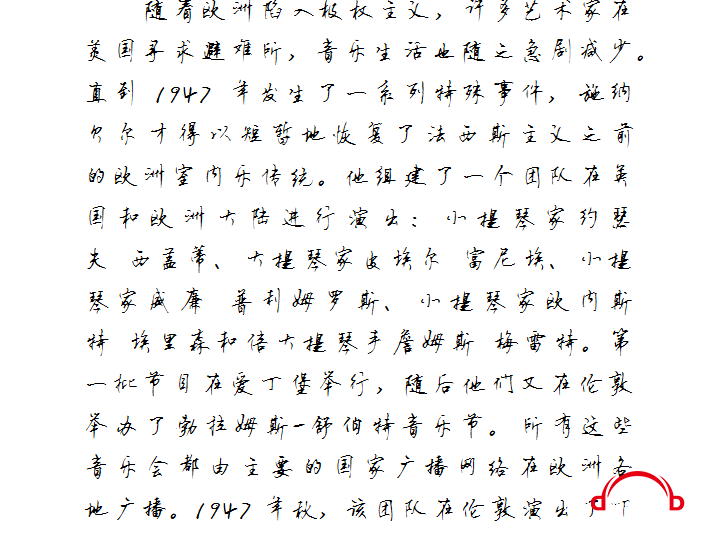 随着欧洲陷入极权主义，许多艺术家在
英国寻求避难所，音乐生活也随之急剧减少。
直到 1947 年发生了一系列特殊事件，施纳
贝尔才得以短暂地恢复了法西斯主义之前
的欧洲室内乐传统。他组建了一个团队在英
国和欧洲大陆进行演出：小提琴家约瑟
夫 西盖蒂、大提琴家皮埃尔 富尼埃、小提
琴家威廉 普利姆罗斯、小提琴家欧内斯
特 埃里森和倍大提琴手詹姆斯 梅雷特。第
一批节目在爱丁堡举行，随后他们又在伦敦
举办了勃拉姆斯-舒伯特音乐节。所有这些
音乐会都由主要的国家广播网络在欧洲各
地广播。1947 年秋，该团队在伦敦演出了